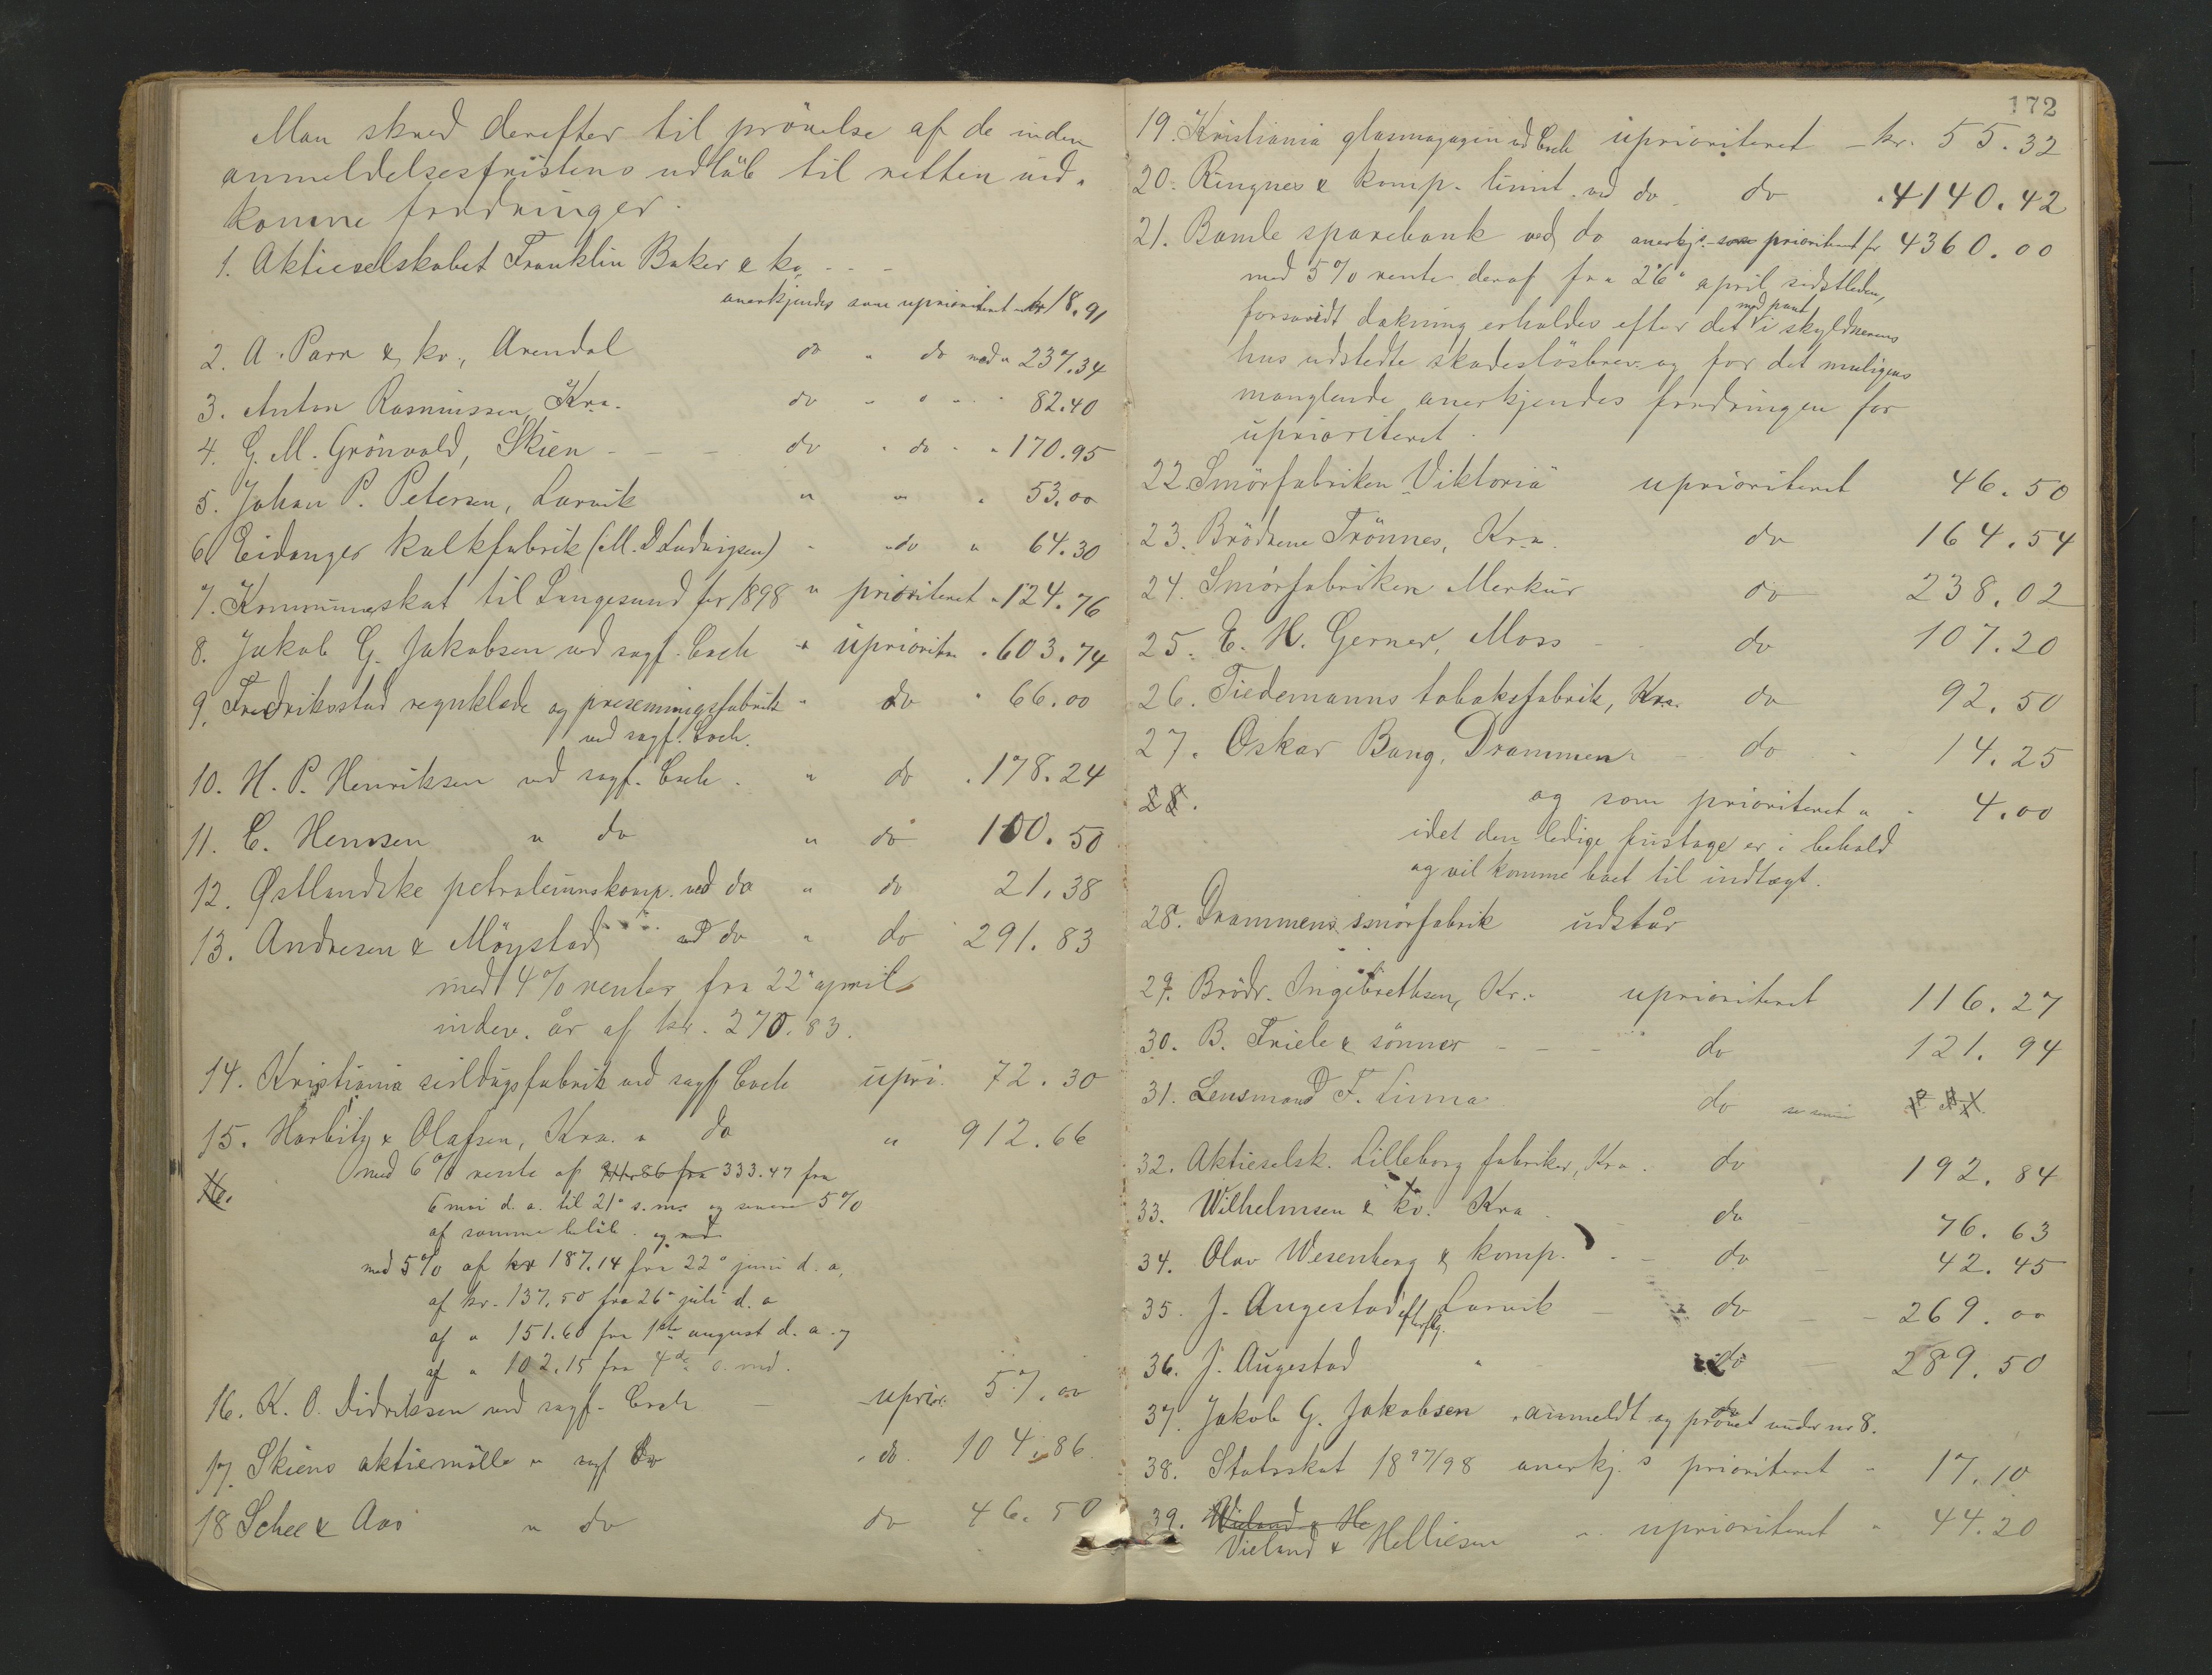 Man skred derefter til prövelse af de inden
anmeldelsesfristens udløb til retten ind-
komne fordringer.
1. Aktieselskabet Franklin Baker & ko - - -
anerkjendes som uprioriteret med kr 18.91
2. A. Parr & ko., Arendal do " do med " 237.34
3. Anton Rasmussen, Kra. do " " " 82.40
4. G. M. Grönvold, Skien - - - do " do " " 170.95
5. Johan P. Petersen, Larvik " " " 53.00
6. Eidanger kalkfabrik (M. D Ludvigsen) " do " 64.30
7. Kommuneskat til Langesund for 1898 " prioriteret " 124.76
8. Jakob G. Jakobsen ved sagf. Coch " upriorite " 603.74
9. Fredriksstad regnklæde og presenningsfabrik " do " 66.00
ved sagf. Coch.
10. H. P. Henriksen ved sagf. Coch. " do " 178.24
11. C. Hemsen " do " do 100.50
12. Østlandske petroleumskomp. ved do " do 21.38
13. Andresen & Möystad ved do " do 291.83
med 4% renter fra 22" april
indev. år af kr. 270.83.
14. Kristiania seildugsfabrik ved sagf Coch upri. 72.30
15. Harbitz & Olafsen, Kra. " do " 912.66
med 6% rente af 333.47 fra
16.
6 mai d. a. til 21" s. m. og senere 5%
af samme beløb. og med
med 5% af kr 187.14 fra 22" juni d. a,
af kr. 137,50 fra 26" juli d. a
af " 151.60 fra 1ste august d. a. og
af " 102.15 fra 4de s. md.
16. K. O. Didriksen ved sagf. Coch - uprior. 57.00
17. Skiens aktiemölle " sagf do " do. 104.86.
18 Schee & Aas " do do 46.50
172
19. Kristiania glasmagazin ved Coch uprioriteret - kr. 55.32
20. Ringnes & komp. ved do do " 4140.42
21. Bamle sparebank ved do anerkj. som prioriteret for 4360.00
med 5% rente deraf fra 26" april sidstleden,
forsavidt dækning erholdes efter det med pant i skyldnerens
hus udstedte skadeslösbrev og for det muligens
manglende anerkjendes fordringen for
uprioriteret.
22. Smörfabriken "Viktoria" uprioriteret 46.50
23. Brödrene Trönnes, Kra. do 164.54
24. Smörfabriken Merkur do 238.02
25. E. H. Gerner, Moss - do 107.20
26. Tiedemanns tobaksfabrik, Kra. do 92.50
27. Oskar Bang, Drammen - do - 14.25
28. og som prioriteret " " 4.00
idet den ledige fustage er i behold
og vil komme boet til indtægt.
28. Drammens smörfabrik udstår
29. Brödr. Ingebrethsen, Kr. uprioriteret 116.27
30. B. Friele & sönner - - - do 121.94
31. Lensmand F. Linna do
32. Aktieselsk. Lilleborg fabriker, Kra. do 192.84
33. Wilhelmsen & ko. Kra - do - 76.63
34. Olav Wesenberg & komp. - - do - 42.45
35. J. Augestad efterflg. Larvik - do - - 269.00
36. J. Augestad " - do - 289.50
37. Jakob G. Jakobsen, anmeldt og prövet under no 8.
38. Statsskat 1897/98 anerkj. s prioriteret - 17.10
39. Wieland & He
Vieland & Helliesen " uprioriteret " 44.20